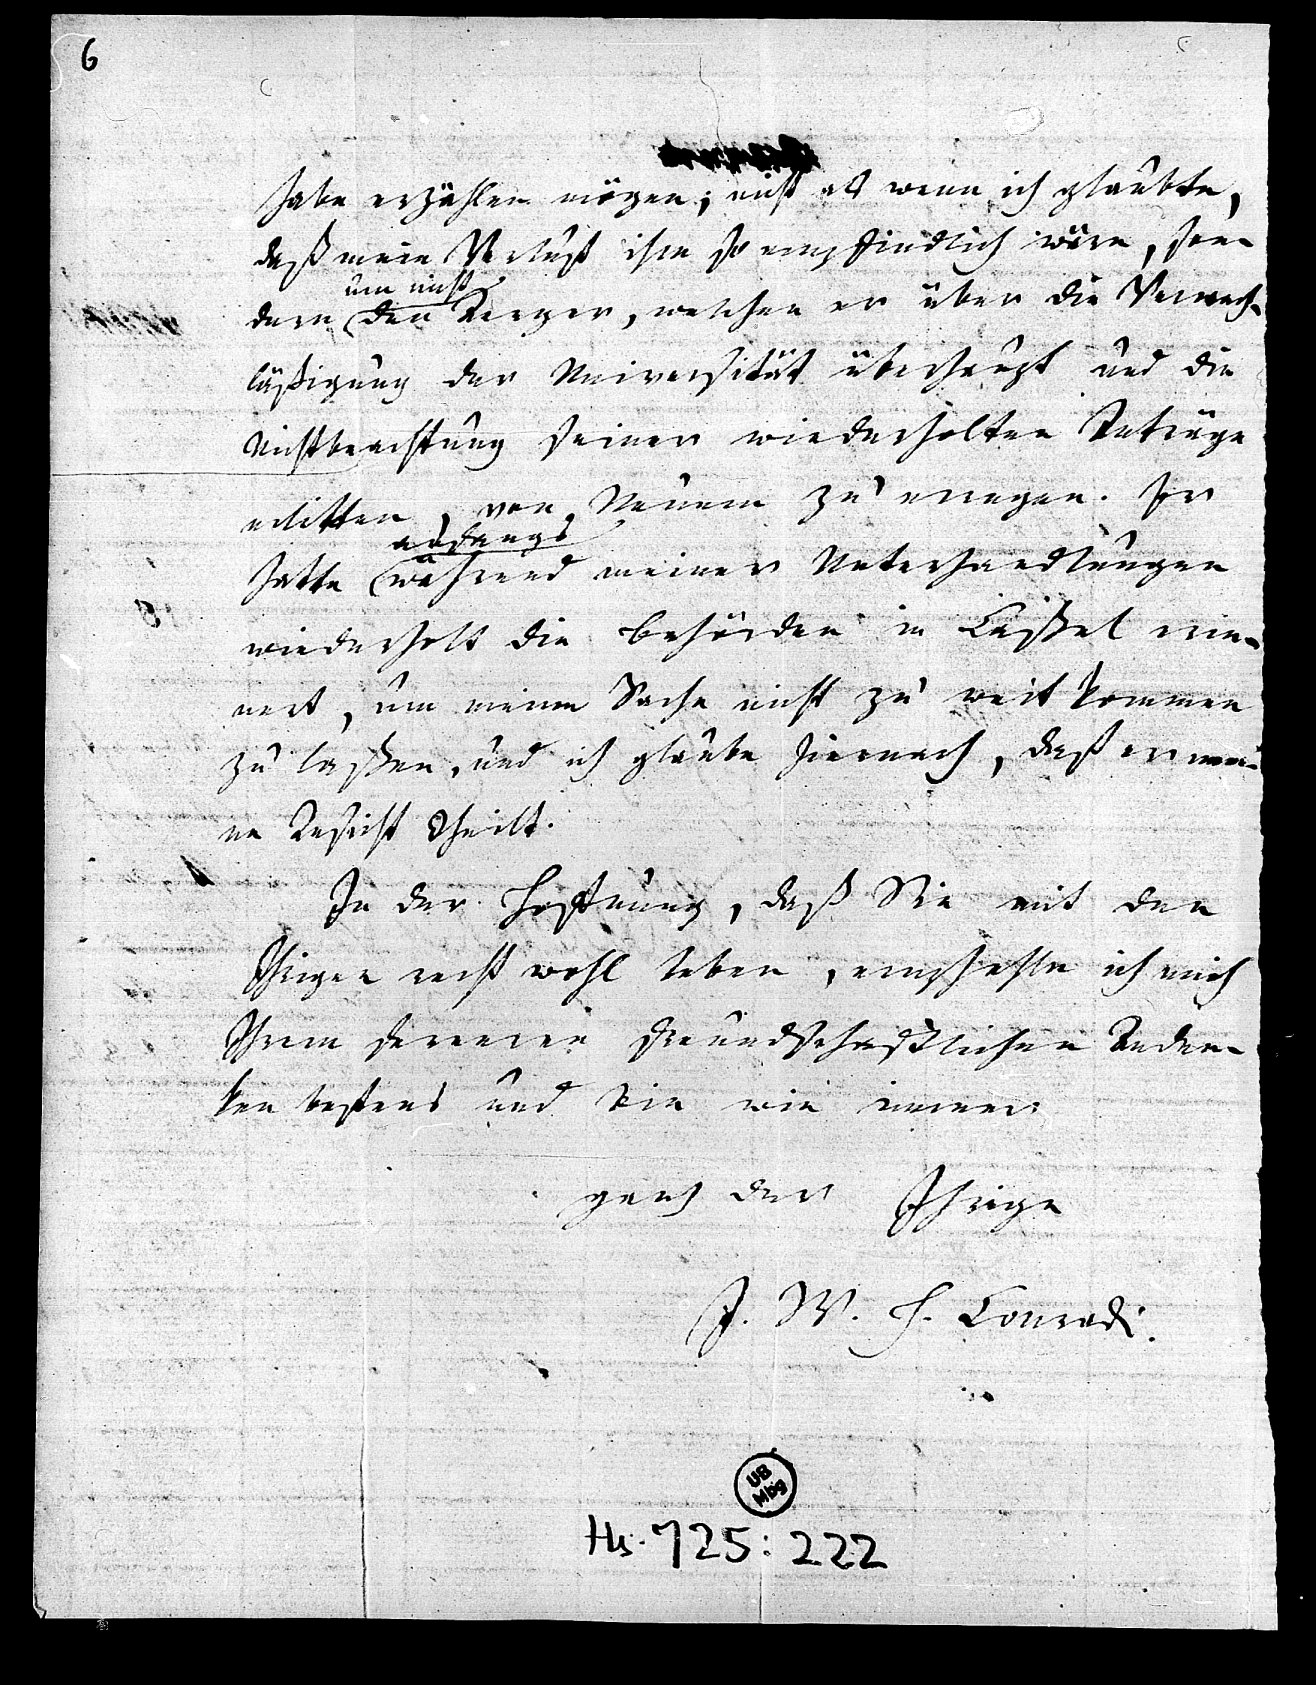 6
habe erzählen mögen; nicht als wenn ich glaubte,
daß mein Verlust ihm so empfindlich wäre, son-
um nicht
dern den Aerger, welchen er über die Vernach-
läßigung der Universität überhaupt und die
Nichtbeachtung seiner wiederholten Anträge
erlitten, von Neuem zu erregen. Er
anfangs
hatte während meiner Unterhandlungen
wiederholt die Behörden in Caßel erin-
nert, um meine Sache nicht zu weit kommen
zu laßen, und ich glaube hiernach, daß er mei-
ne Ansicht theilt.
In der Hoffnung, daß Sie mit den
Ihrigen recht wohl leben, empfehle ich mich
Ihrem ferneren freundschaftlichen Anden-
ken bestens und bin wie immer
ganz der Ihrige
J. W. H. Conradi.
UB
Mbg
Hs. 725:222